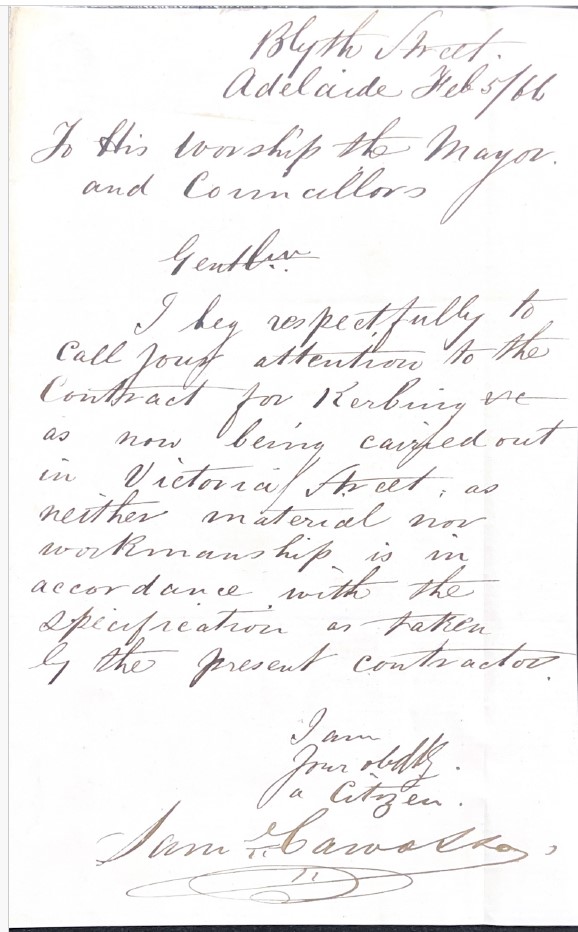 Blyth Street.
Adelaide Feb 5/66
To His Worship the Mayor.
and Councillors
Gentlmn
I beg respectfully to
Call your attention to the
Contract for Kerbing &c
as now being carried out
in Victoria Street, as
neither material nor
workmanship is in
accordance with the
specification as taken
by the present contractor.
I am
your obdtly.
a Citizen.
Saml